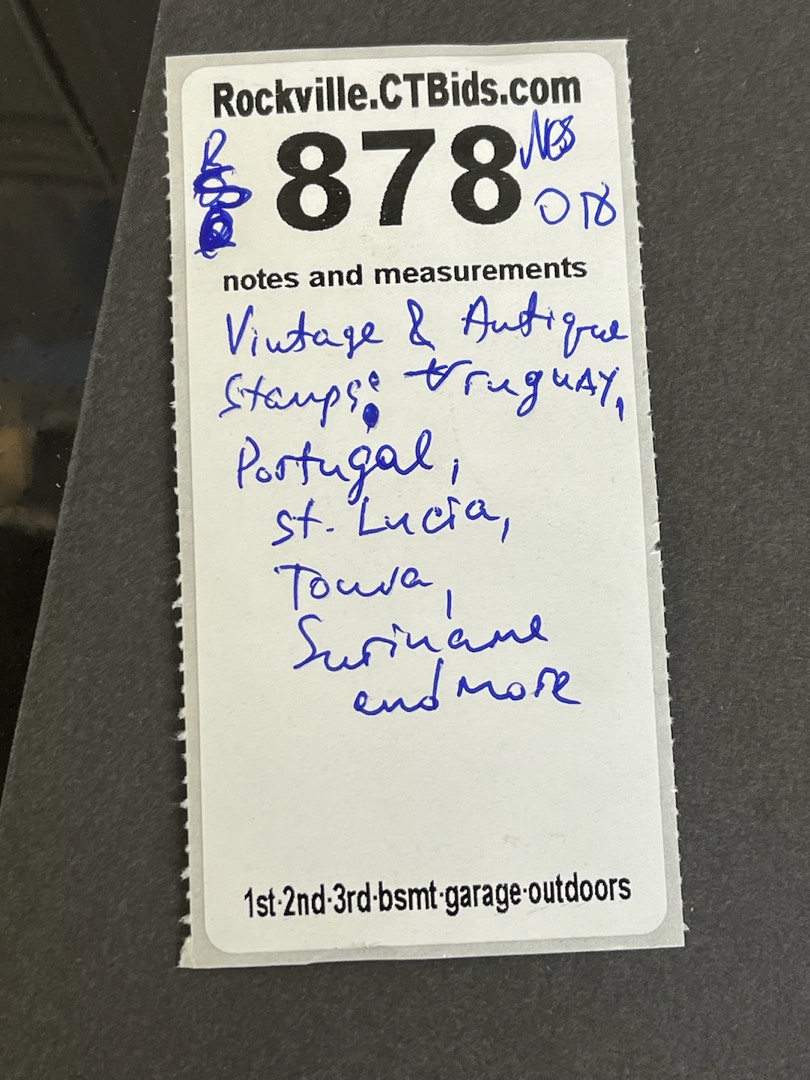 Rockville.CTBids.com
R 878 NBS
OTB
notes and measurements
Vintage & Antique
Stamps: Uruguay,
Portugal,
St. Lucia,
Touva,
Suriname
and More
1st·2nd·3rd·bsmt·garage·outdoors